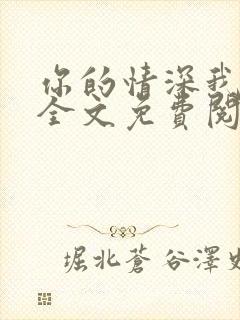 你的情深我
全文免費閱
堀北蒼谷澤